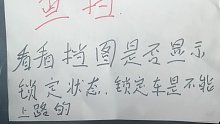 看看挡图是否显示
锁定状态.锁定车是不能
上路的